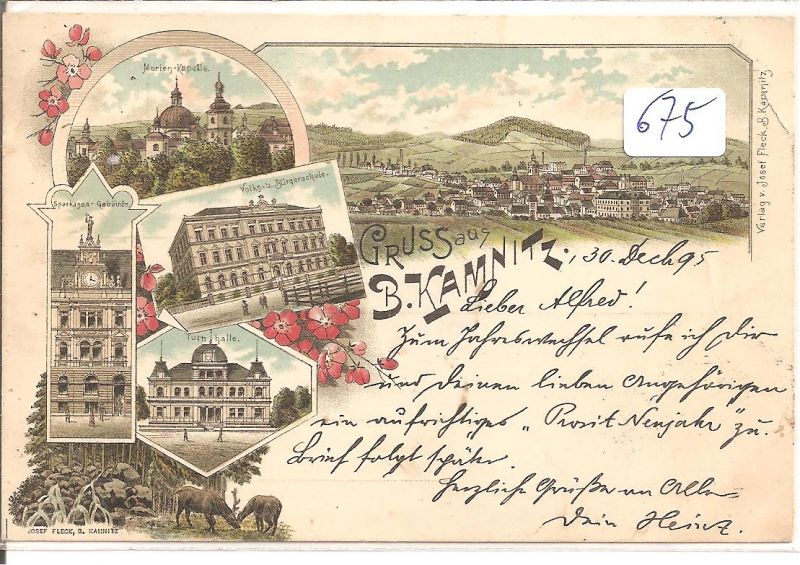 Marien-Kapelle.
675
Verlag v. Josef Fleck, B. Kamnitz
Volks- u. Bürgerschule.
Sparkassa-Gebäude.
GRUSS aus
B. KAMNITZ.
, 30. Decb 95
Lieber Alfred!
Zum Jahreswechsel rufe ich Dir
und Deinen lieben Angehörigen
ein aufrichtiges „Prosit Neujahr" zu.
Brief folgt später.
Herzliche Grüße an Alle
Dein Heinz.
Turnhalle.
JOSEF FLECK, B. KAMNITZ